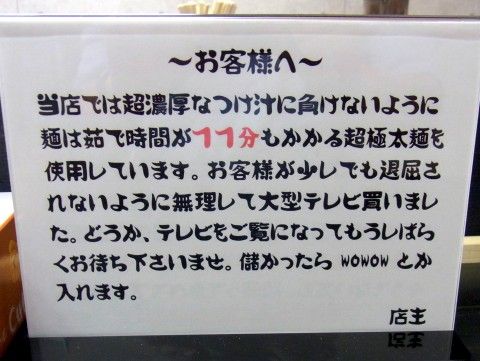 ～お客様へ～
当店では超濃厚なつけ汁に負けないように
麺は茹で時間が11分もかかる超極太麺を
使用しています。お客様が少しでも退屈さ
れないように無理して大型テレビ買いまし
た。どうか、テレビをご覧になってもうしばら
くお待ち下さいませ。儲かったら WOWOW とか
入れます。
店主